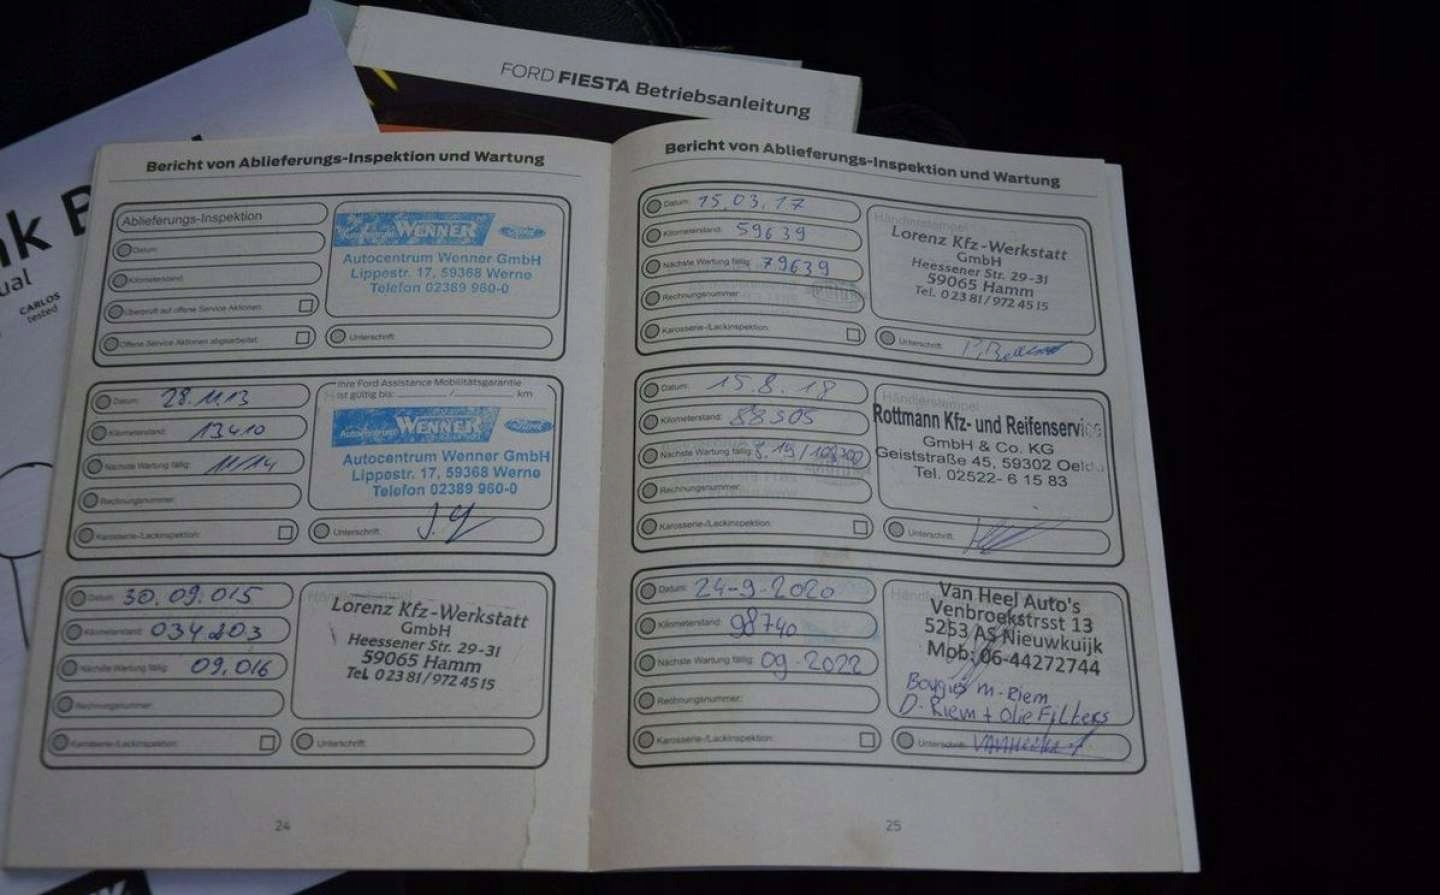 FORD FIESTA Betriebsanleitung
nk B
ual
CARLOS
tested
Bericht von Ablieferungs-Inspektion und Wartung
Ablieferungs-Inspektion
Datum:
Kilometerstand:
Überprüft auf offene Service Aktionen:
Offene Service Aktionen abgearbeitet:
Autocentrum WENNER Ford
Autocentrum Wenner GmbH
Lippestr. 17, 59368 Werne
Telefon 02389 960-0
Unterschrift:
Datum: 28.11.13
Kilometerstand: 13410
Nächste Wartung fällig: 11/14
Rechnungsnummer:
Karosserie-/Lackinspektion:
Ihre Ford Assistance Mobilitätsgarantie
ist gültig bis: / km
Autocentrum WENNER Ford
Autocentrum Wenner GmbH
Lippestr. 17, 59368 Werne
Telefon 02389 960-0
Unterschrift:
Datum: 30.09.015
Kilometerstand: 034203
Nächste Wartung fällig: 09.016
Rechnungsnummer:
Karosserie-/Lackinspektion:
Händlerstempel
Lorenz Kfz-Werkstatt
GmbH
Heessener Str. 29-31
59065 Hamm
Tel. 0 23 81 / 972 45 15
Unterschrift:
24
Bericht von Ablieferungs-Inspektion und Wartung
Datum: 15.03.17
Kilometerstand: 59639
Nächste Wartung fällig: 79639
Rechnungsnummer:
Karosserie-/Lackinspektion:
Händlerstempel
Lorenz Kfz-Werkstatt
GmbH
Heessener Str. 29-31
59065 Hamm
Tel. 0 23 81 / 972 45 15
Unterschrift:
Datum: 15.8.18
Kilometerstand: 88505
Nächste Wartung fällig: 8.19/108500
Rechnungsnummer:
Karosserie-/Lackinspektion:
Händlerstempel
Rottmann Kfz- und Reifenservice
GmbH & Co. KG
Geiststraße 45, 59302 Oelde
Tel. 02522- 6 15 83
Unterschrift:
Datum: 24-9-2020
Kilometerstand: 98740
Nächste Wartung fällig: 09-2022
Rechnungsnummer:
Karosserie-/Lackinspektion:
Van Heel Auto's
Venbroekstrsst 13
5253 AS Nieuwkuijk
Mob: 06-44272744
Bougies M-Riem
D-Riem + Olie Filters
Unterschrift:
25